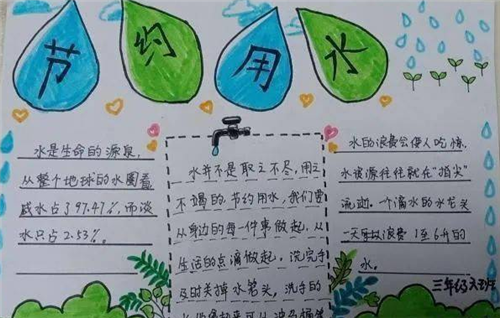 节约用水
水是生命的源泉,
从整个地球的水圈看
咸水占了97.47%,而淡
水只占2.53%。
水并不是取之不尽,用之
不竭的.节约用水,我们要
从身边的每一件事做起,从
生活的点滴做起,洗完手
及时关掉水笼头,洗手的
水的浪费会使人吃惊.
水资源往往就在“指尖”
流逝.一个滴水的水龙头
一天可以浪费1至6升的
水。
三年级六班